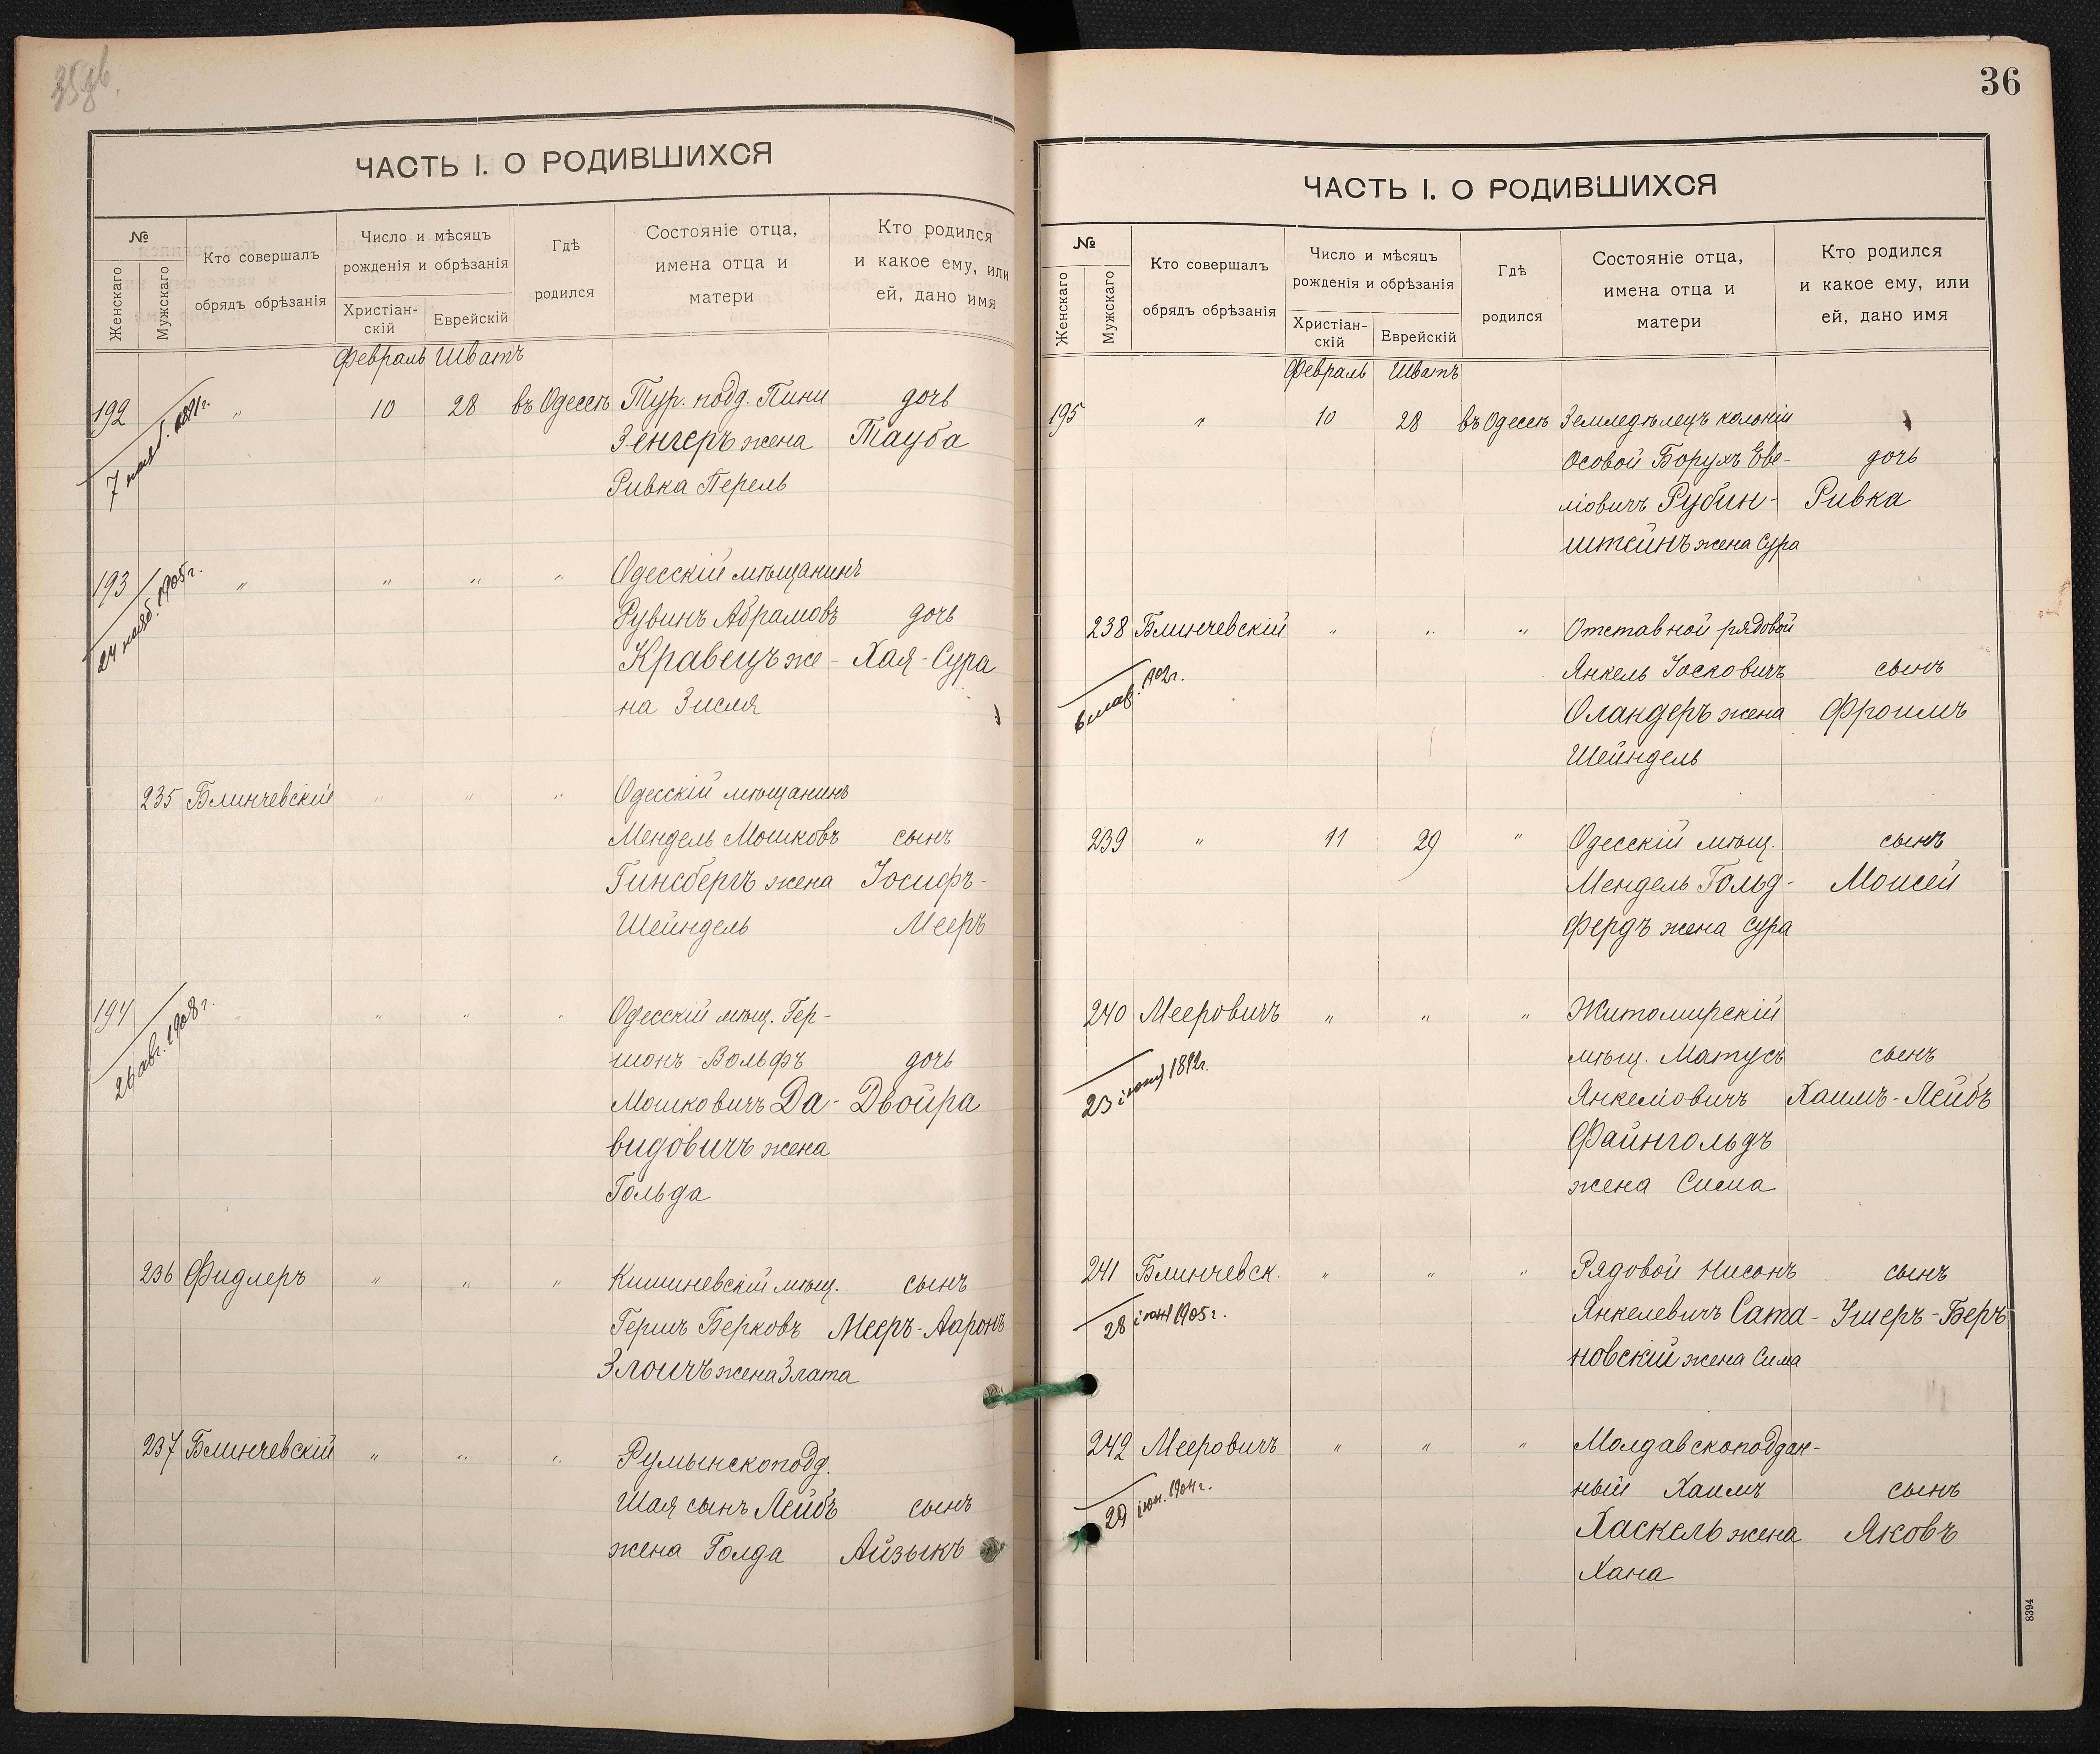 ЧАСТЬ I. О РОДИВШИХСЯ
№
Женскаго
Мужскаго
Кто совершалъ
обрядъ обрѣзанія
Число и мѣсяцъ
рожденія и обрѣзанія
Христіан-
скій
Еврейскій
Гдѣ
родился
Состояніе отца,
имена отца и
матери
Кто родился
и какое ему, или
ей, дано имя
Февраль Шватъ
192 " 10 28 въ Одессѣ Тур. подд. Пини дочь
Зенгеръ жена Тауба
Ривка Перель
193 " " " " Одесскій мѣщанинъ
24 нояб. 1905 г.
Рувинъ Абрамовъ дочь
Кравецъ же- Хая-Сура
на Зисля
235 Блинчевскій " " " Одесскій мѣщанинъ
Мендель Мошковъ сынъ
Гинсбергъ жена Іосифъ-
Шейндель Мееръ
194 " " " " Одесскій мѣщ. Гер-
26 авг. 1908 г.
шонъ-Вольфъ дочь
Мошковичъ Да- Двойра
видовичъ жена
Гольда
236 Фидлеръ " " " Кишиневскій мѣщ. сынъ
Гершъ Берковъ Мееръ-Ааронъ
Злочъ жена Злата
237 Блинчевскій " " " Румынскоподд.
Шая сынъ Лейбъ сынъ
жена Голда Айзыкъ
36
ЧАСТЬ I. О РОДИВШИХСЯ
№
Женскаго
Мужскаго
Кто совершалъ
обрядъ обрѣзанія
Число и мѣсяцъ
рожденія и обрѣзанія
Христіан-
скій
Еврейскій
Гдѣ
родился
Состояніе отца,
имена отца и
матери
Кто родился
и какое ему, или
ей, дано имя
Февраль Шватъ
195 " 10 28 въ Одессѣ Земледѣлецъ колоніи
Осовой Борухъ Еве- дочь
ліовичъ Рубин- Ривка
штейнъ жена Сура
238 Блинчевскій " " " Отставной рядовой
Янкель Іосковичъ сынъ
1902 г.
Оландеръ жена Фроимъ
Шейндель
239 " 11 29 " Одесскій мѣщ. сынъ
Мендель Гольд- Моисей
фердъ жена Сура
240 Мееровичъ " " " Житомирскій
мѣщ. Матусъ сынъ
Янкеліовичъ Хаимъ-Лейбъ
Файнгольдъ
жена Сима
241 Блинчевск. " " " Рядовой Нисонъ сынъ
28 1905 г.
Янкелевичъ Сата- Ушеръ-Беръ
новскій жена Сима
242 Мееровичъ " " " Молдавскоподдан-
29 1904 г.
ный Хаимъ сынъ
Хаскель жена Яковъ
Хана
8394